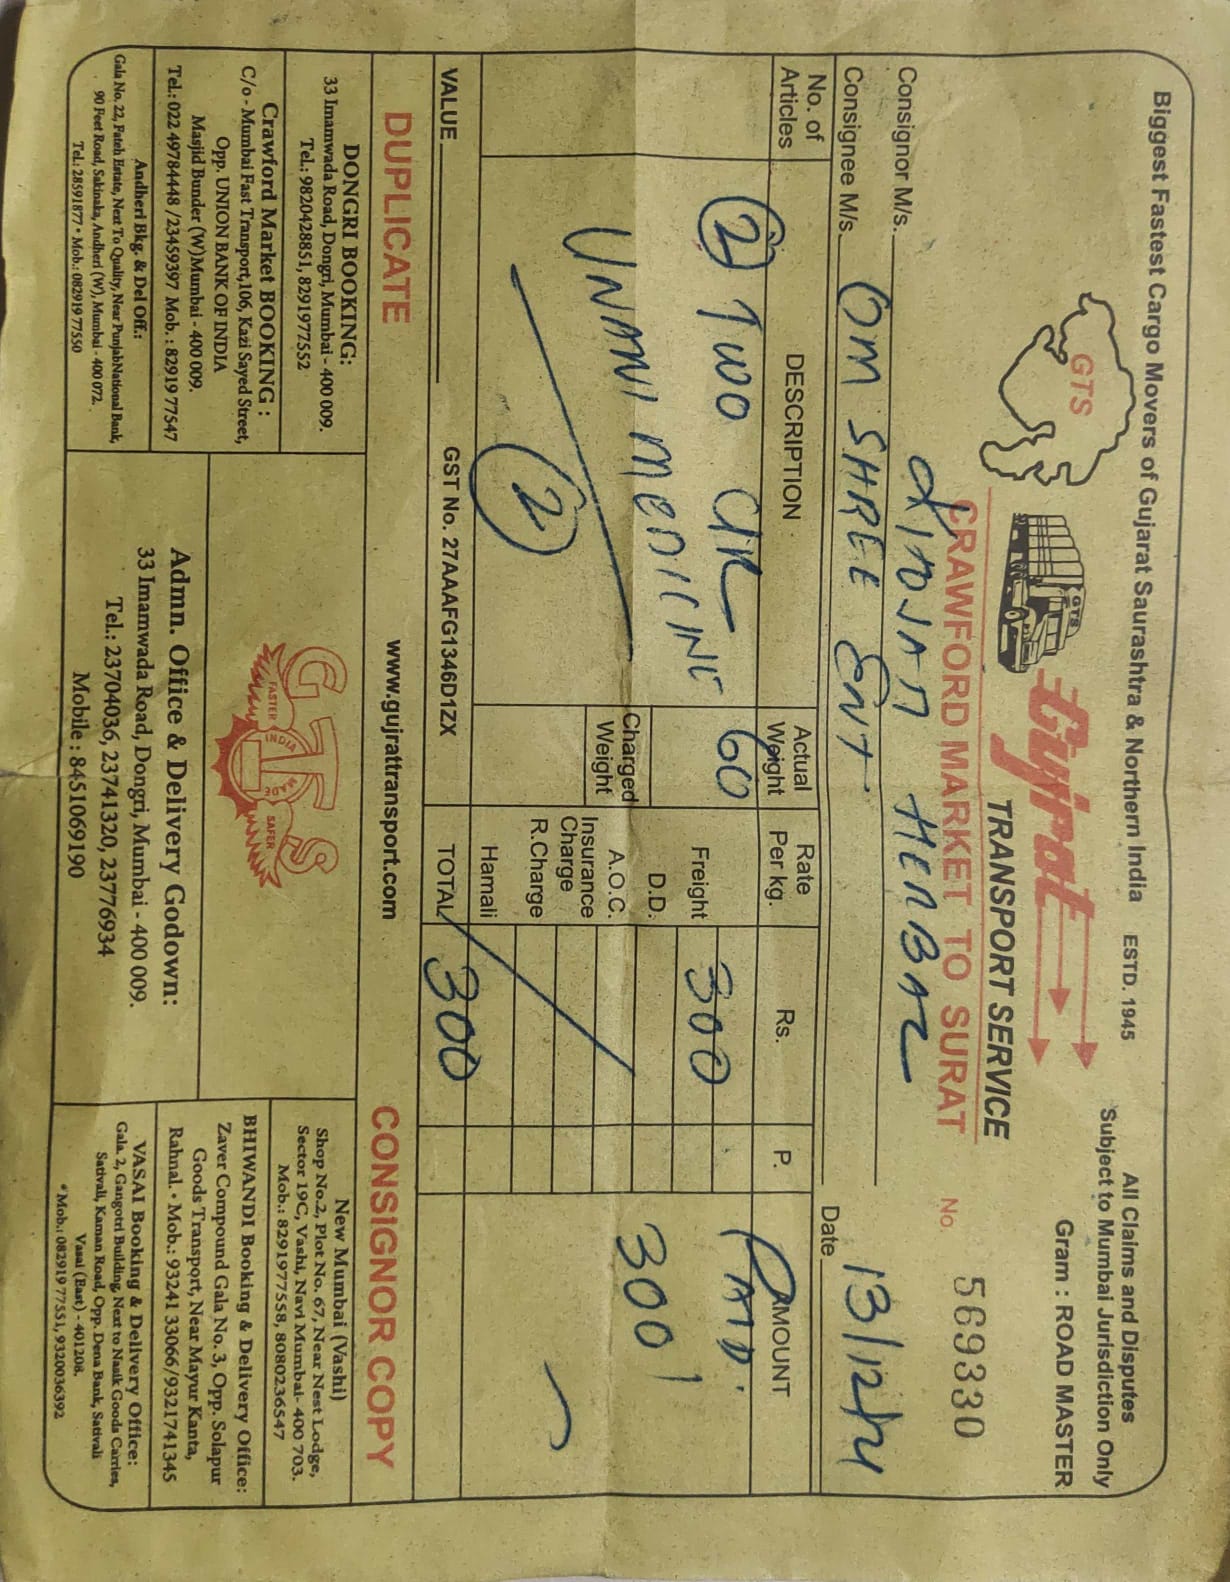 Biggest Fastest Cargo Movers of Gujarat Saurashtra & Northern India ESTD. 1945
All Claims and Disputes
Subject to Mumbai Jurisdiction Only
Gram : ROAD MASTER
GTS
GTS
Gujrat
TRANSPORT SERVICE
CRAWFORD MARKET TO SURAT
No. 569330
Consignor M/s. HERBAL
Consignee M/s. OM SHREE ENT
Date 13/12/24
No. of Articles DESCRIPTION Actual Weight Rate Per kg. Rs. P. AMOUNT
2 TWO 60 Freight 300 PAID.
UNANI MEDICINE
D.D. 300
Charged Weight A.O.C.
Insurance Charge
R.Charge
2 Hamali
VALUE GST No. 27AAAFG1346D1ZX TOTAL 300
DUPLICATE www.gujrattransport.com CONSIGNOR COPY
DONGRI BOOKING:
33 Imamwada Road, Dongri, Mumbai - 400 009.
Tel.: 9820428851, 8291977552
Crawford Market BOOKING :
C/o - Mumbai Fast Transport,106, Kazi Sayed Street,
Opp. UNION BANK OF INDIA
Masjid Bunder (W)Mumbai - 400 009.
Tel.: 022 49784448 /23459397 Mob. : 82919 77547
Andheri Bkg. & Del Off.:
Gala No. 22, Fateh Estate, Next To Quality, Near PunjabNational Bank,
90 Feet Road, Sakinaka, Andheri (W), Mumbai - 400 072.
Tel.: 28591877 • Mob.: 082919 77550
GTS
FASTER INDIA SAFER
Admn. Office & Delivery Godown:
33 Imamwada Road, Dongri, Mumbai - 400 009.
Tel.: 23704036, 23741320, 23776934
Mobile : 8451069190
New Mumbai (Vashi)
Shop No.2, Plot No. 67, Near Nest Lodge,
Sector 19C, Vashi, Navi Mumbai- 400 703.
Mob.: 8291977558, 8080236547
BHIWANDI Booking & Delivery Office:
Zaver Compound Gala No. 3, Opp. Solapur
Goods Transport, Near Mayur Kanta,
Rahnal. • Mob.: 93241 33066/9321741345
VASAI Booking & Delivery Office:
Gala. 2, Gangotri Building, Next to Naaik Goods Carries,
Sativali, Kaman Road, Opp. Dena Bank, Sativali
Vasai (East) - 401208.
• Mob.: 082919 77551, 9320036392